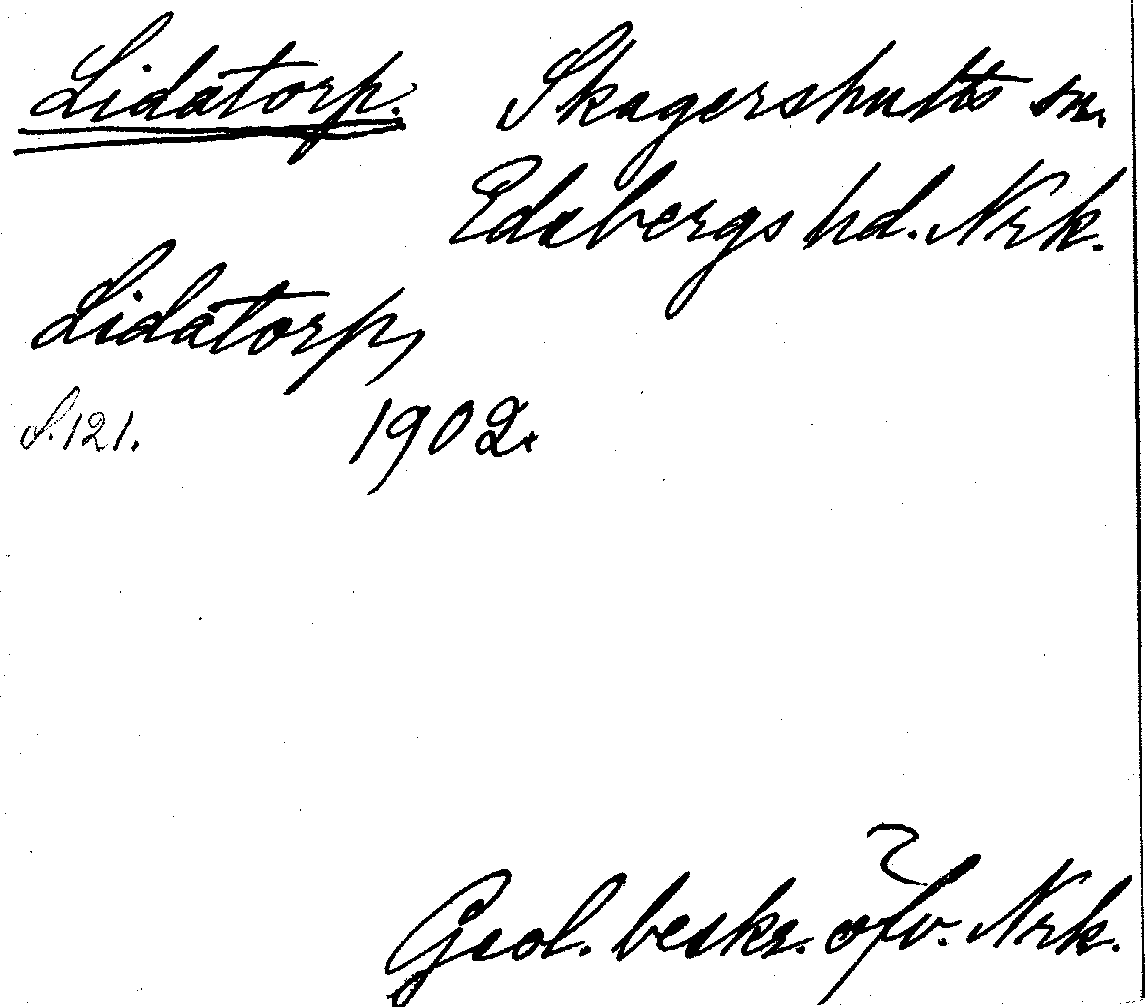 Lidatorp. Skagershults sn.
Edsbergs hd. Nrk.
Lidatorp,
S. 121. 1902.
Geol. beskr. öfv. Nrk.